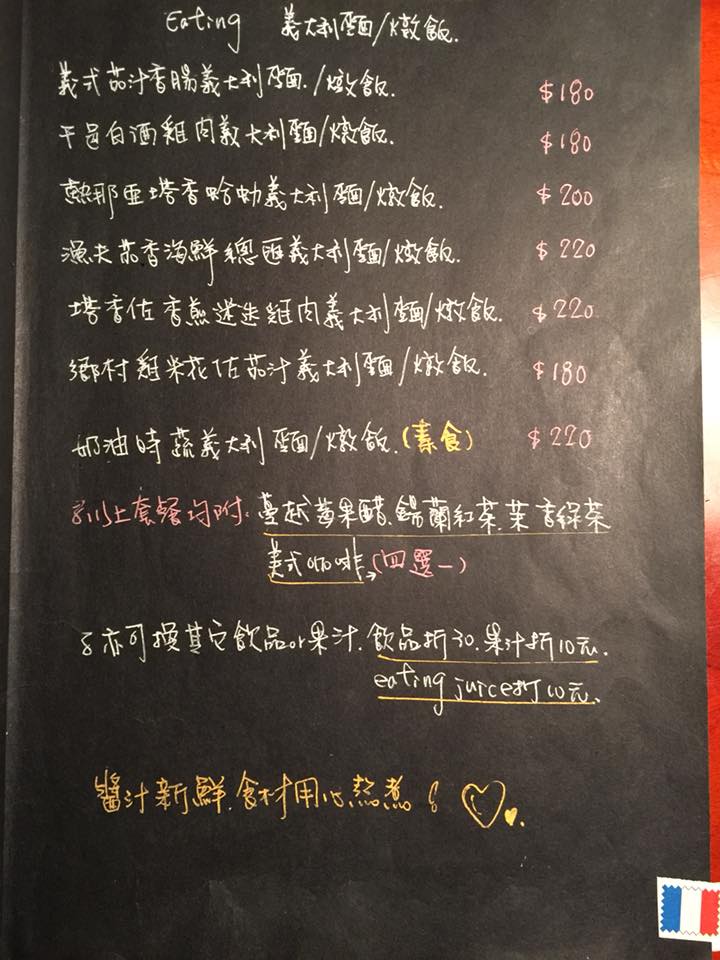 Eating 義大利麵/燉飯.
義式茄汁香腸義大利麵./燉飯. $180
干邑白酒雞肉義大利麵/燉飯. $180
熱那亞塔香蛤蚋義大利麵/燉飯. $200
漁夫茄香海鮮總匯義大利麵/燉飯. $220
塔香佐香煎迷迭雞肉義大利麵/燉飯. $220
鄉村雞米花佐茄汁義大利麵/燉飯. $180
奶油時蔬義大利麵/燉飯.(素食) $220
以上套餐均附: 蔓越蘋果醋.錫蘭紅茶.茉香綠茶
美式咖啡→(四選一)
亦可換其它飲品or果汁.飲品折30.果汁折10元.
eating juice折10元.
醬汁新鮮.食材用心熬煮!